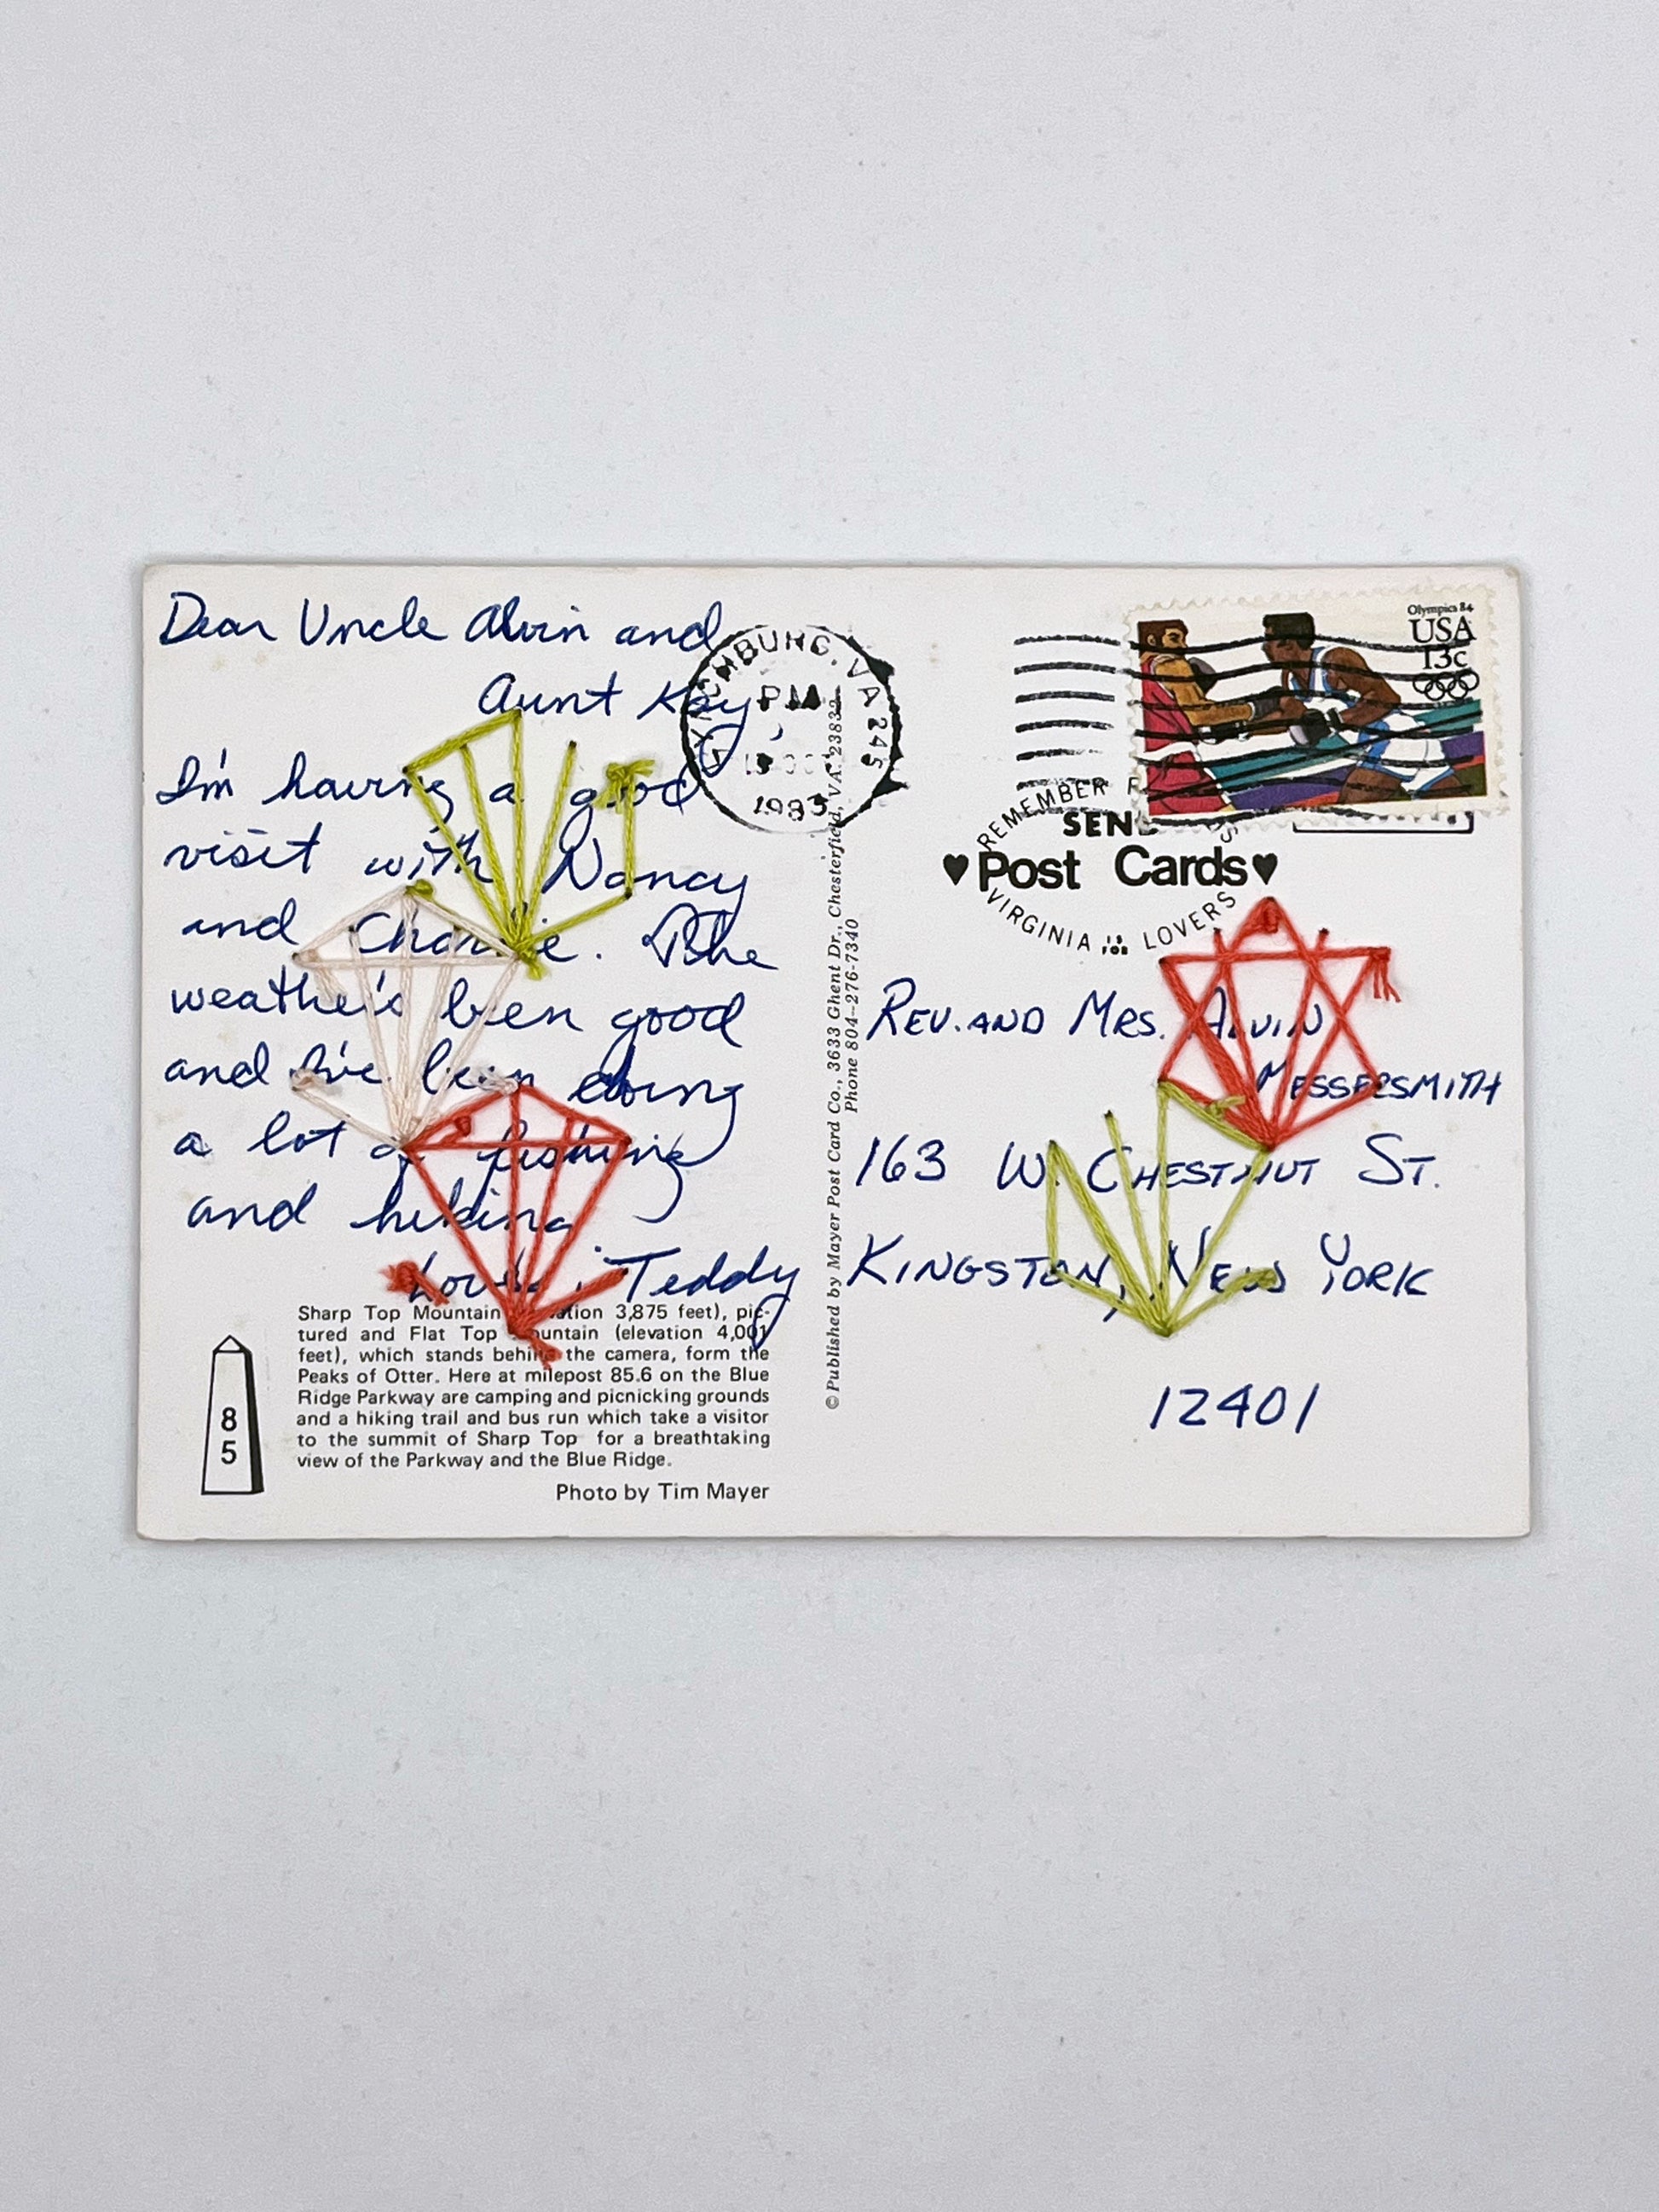 Dear Uncle Alvin and
Aunt Kay,
I'm having a good
visit with Nancy
and Charlie. The
weather's been good
and I've been doing
a lot of fishing
and hiking
Love, Teddy
Sharp Top Mountain 3,875 feet), pic-
tured and Flat Top Mountain (elevation 4,001
feet), which stands behind the camera, form the
Peaks of Otter. Here at milepost 85.6 on the Blue
Ridge Parkway are camping and picnicking grounds
and a hiking trail and bus run which take a visitor
to the summit of Sharp Top for a breathtaking
view of the Parkway and the Blue Ridge.
Photo by Tim Mayer
8
5
© Published by Mayer Post Card Co., 3633 Ghent Dr., Chesterfield, VA. 23832
Phone 804-276-7340
VA 245
PM
1983
Olympics 84
USA
13c
REMEMBER
SEND
♥Post Cards♥
VIRGINIA IS FOR LOVERS
REV. AND MRS. ALVIN
MESSERSMITH
163 W. CHESTNUT ST.
KINGSTON, NEW YORK
12401